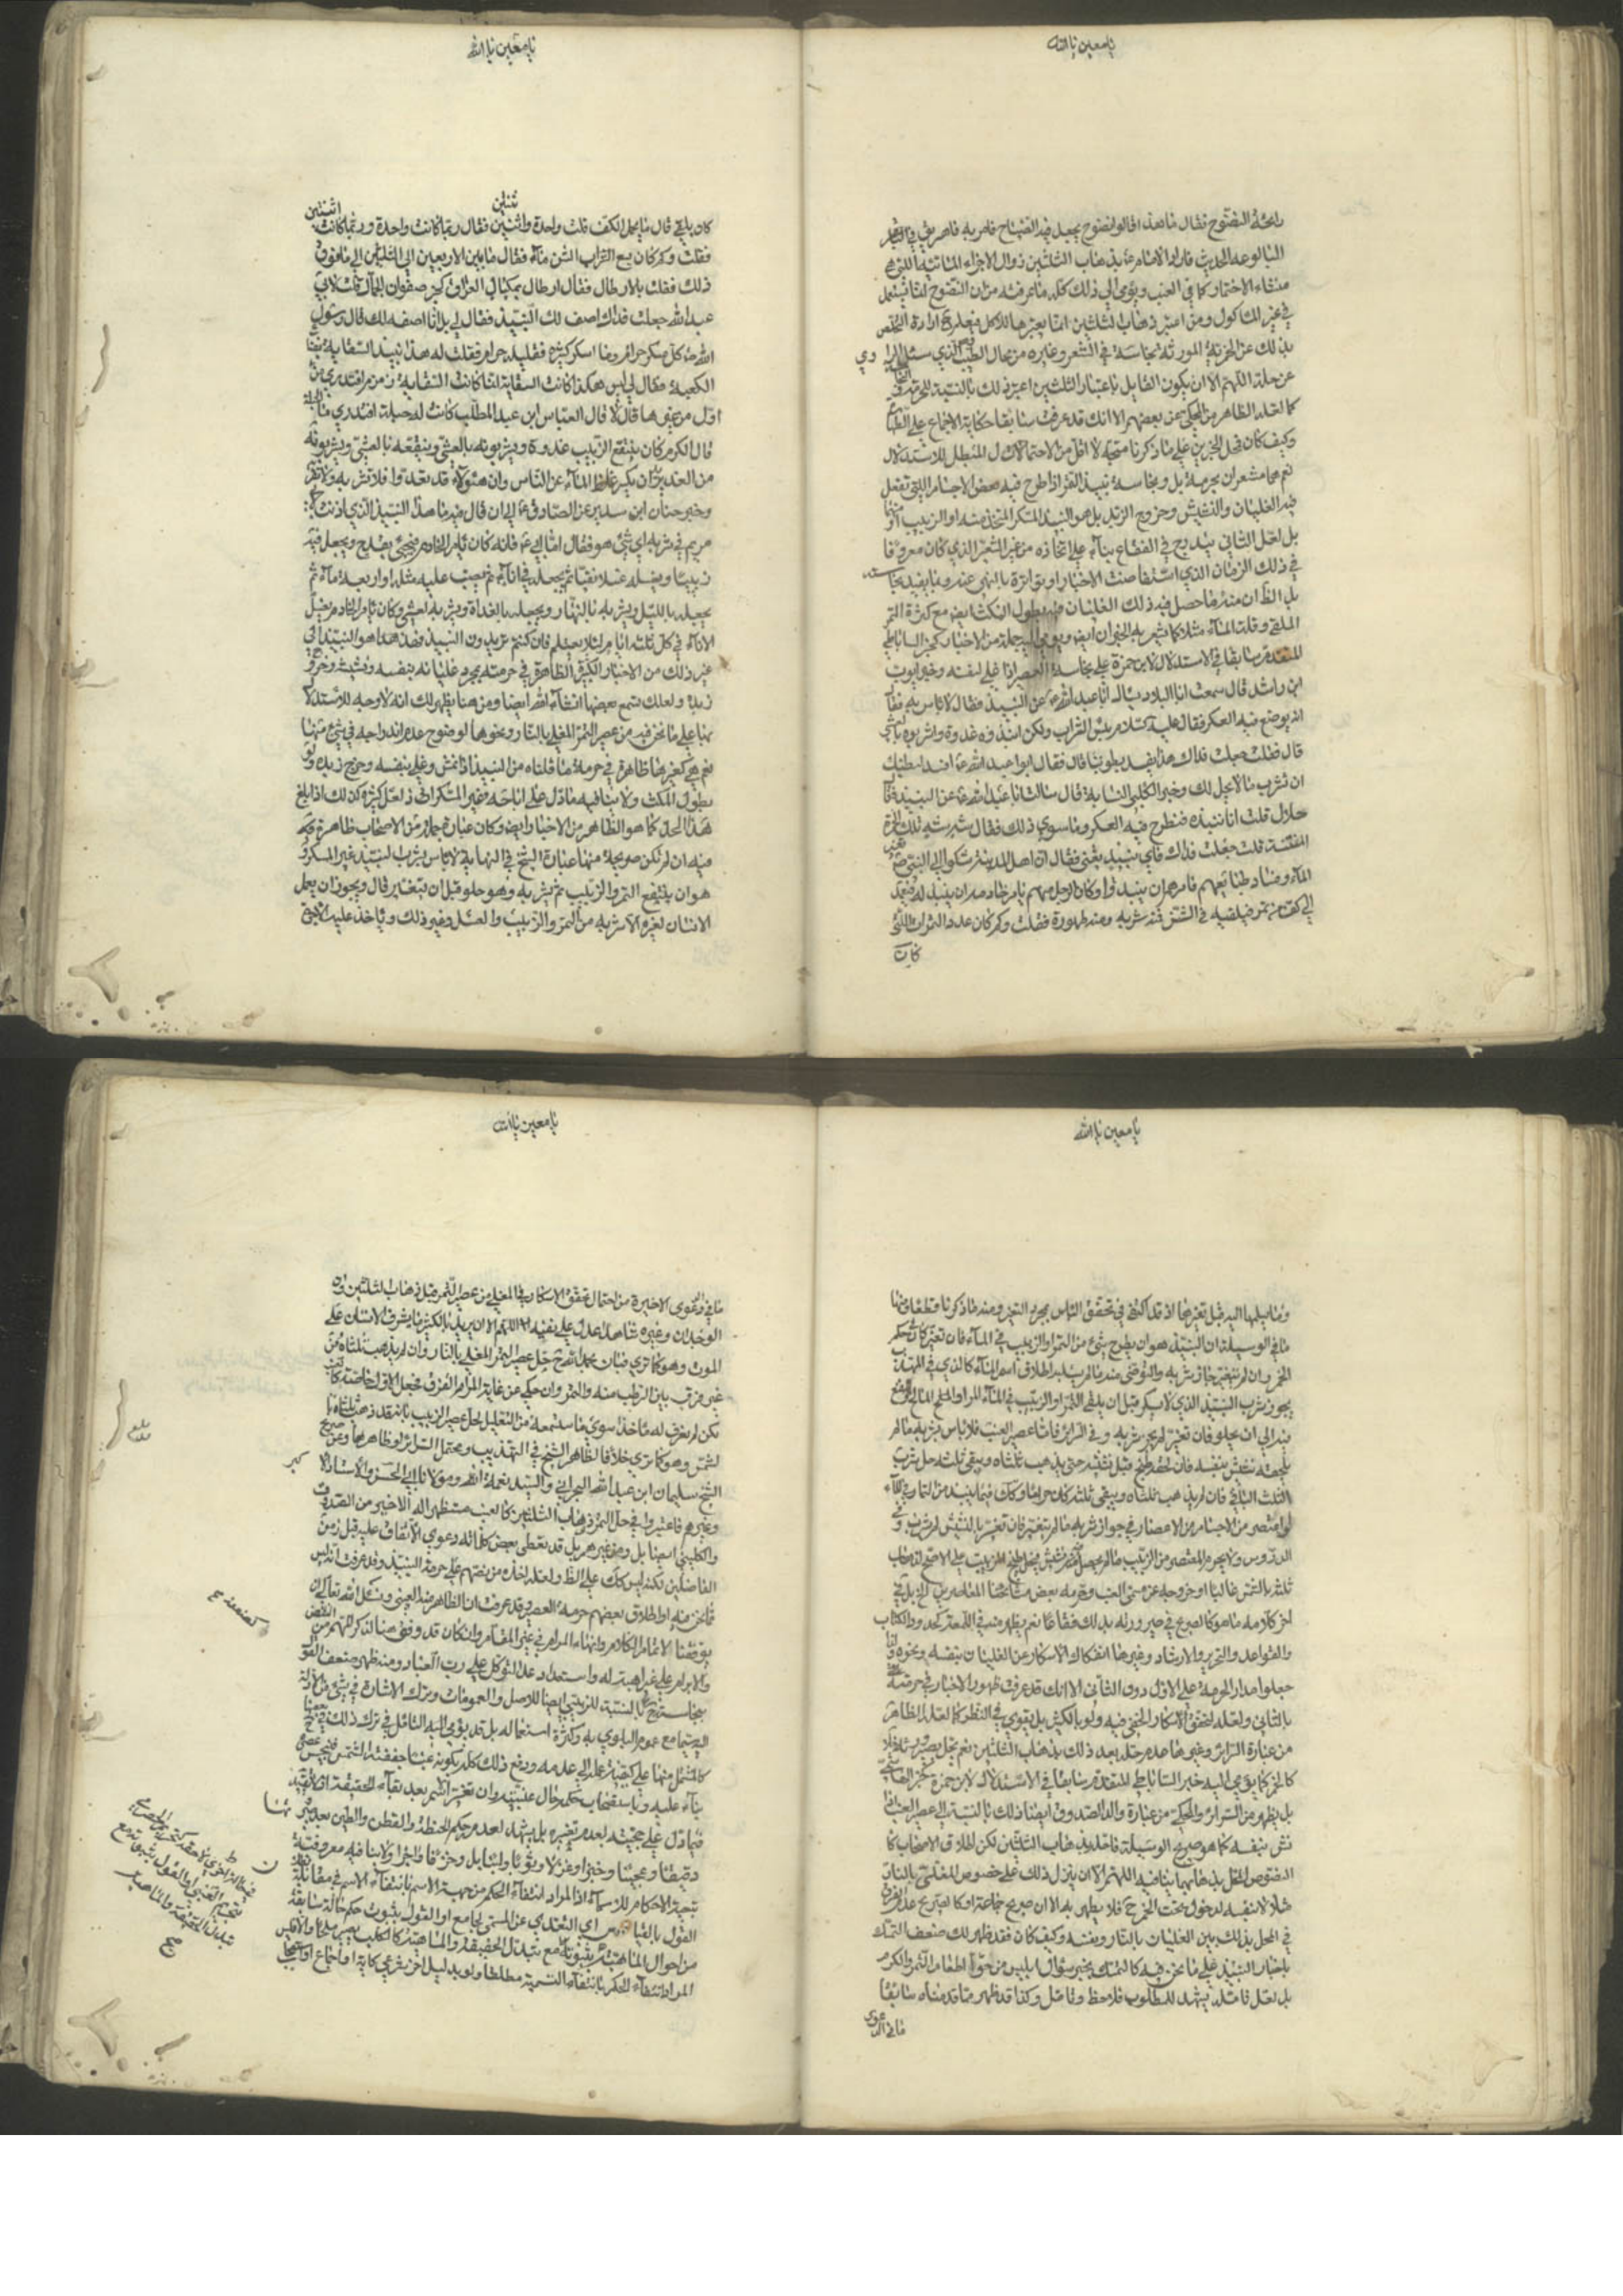 يا معين يا الله
رائحة النضوح فقال ما هذا قالوا نضوح يجعل فيه الضياح فامر به فاهريق في
البالوعة الحديث فاراد الامام ع بذهاب الثلثين زوال الاجزاء المائية اللتي هي
منشاء الاختمار كما في العنب ويؤمي الى ذلك كله ما عرفته من ان النضوح
في غير المأكول ومن اعتبر ذهاب الثلثين انما يعتبرها للاكل ارادة
بذلك عن الخمرية المورثة نجاسة في الشعر وغيره من محال الطيب الذي سئل الراوي
عن حله اللهم الا ان يكون القايل باعتبار الثلثين اعتبر ذلك بالنسبة للحرمة
كما لعله الظاهر من المحكي عن بعضهم الا انك قد عرفت سابقا حكاية الاجماع على
وكيف كان فحمل الخبرين على ما ذكرنا متجه لا اقل من الاحتمال المبطل للاستدلال
نعم هما مشعران بحرمة بل ونجاسة نبيذ التمر اذا طرح فيه بعض الاجسام اللتي تفعل
فيه الغليان والنشيش وخروج الزبد بل هو النبيذ المسكر المتخذ منه او الزبيب او منهما
بل لعل الثاني يندرج في الفقاع بناء على اتخاذه من غير الشعير الذي كان معروفا
في ذلك الزمان الذي استفاضت الاخبار او تواترت بالنهي عنه وما يفيد نجاسته
بل الظ ان منه ما حصل فيه ذلك الغليان بطول المكث ايضا مع كثرة التمر
الملقى وقلة الماء مثلا كما يشعر به الخبران ايضا ويؤمي اليه جملة من الاخبار كخبر الساباطي
المتقدم سابقا في الاستدلال لابن حمزة على نجاسة العصير اذا غلى بنفسه وخبر ايوب
ابن راشد قال سمعت ابا البلاد يسأل ابا عبد الله ع عن النبيذ فقال لا باس به فقال
انه يوضع فيه العكر فقال عليه السلام بئس الشراب ولكن انبذوه غدوة واشربوه بالعشي
قال فقلت جعلت فداك هذا يفسد بطوننا قال فقال ابو عبد الله ع افسد لبطنك
ان تشرب ما لا يحل لك وخبر الكلبي النسابة قال سالت ابا عبد الله ع عن النبيذ فقال
حلال قلت انا ننبذه فنطرح فيه العكر وما سوى ذلك فقال شه شه تلك الخمرة
المنتنة قلت جعلت فداك فاي نبيذ تعني فقال ان اهل المدينة شكوا الى النبي ص تغير
الماء وفساد طبايعهم فامرهم ان ينبذوا وكان الرجل منهم يامر خادمه ان ينبذ له فيعمد
الى كف من تمر فيلقيه في الشن فمنه شربه ومنه طهوره فقلت وكم كان عدد التمرات اللتي
كان
يا معين يا الله
ثنتين
اثنتين
كان يلقي قال ما يحمل الكف قلت واحدة واثنتين فقال ربما كانت واحدة وربما كانت
فقلت وكم كان يسع الشن ماء فقال ما بين الاربعين الى الثمانين الى ما فوق
ذلك فقلت بالارطال فقال ارطال بمكيال العراق كخبر صفوان الجمال قلت لابي
عبد الله جعلت فداك اصف لك النبيذ فقال لي بل انا اصفه لك قال رسول
الله ص كل مسكر حرام وما اسكر كثيره فقليله حرام فقلت له هذا نبيذ السقاية بفناء
الكعبة فقال لي ليس هكذا كانت السقاية انما كانت السقاية زمزم افتدري من
اول من غيرها قال لا قال العباس ابن عبد المطلب كانت له حبلة افتدري ما الحبلة
قال الكرم كان ينقع الزبيب غدوة ويشربونه بالعشي وينقعه بالعشي ويشربونه
من الغد يريد ان يكسر غلظ الماء عن الناس وان هؤلاء قد تعدوا فلا تشربه ولا تقربه
وخبر حنان ابن سدير عن الصادق ع الى ان قال فيه ما هذا النبيذ الذي اذنت لابي
مريم في شربه اي شئ هو فقال اما ابي ع فانه كان يأمر الخادم فيجئ بقدح ويجعل فيه
زبيبا ويغسله غسلا نقيا ثم يجعله في اناء ثم يصب عليه مثله او اربعة ماء ثم
يجعله بالليل ويشربه بالنهار ويجعله بالغداة ويشربه بالعشي وكان يأمر الخادم بغسل
الاناء في كل ثلثة ايام لئلا يغتلم فان كنتم تريدون النبيذ فهذا هو النبيذ الى
غير ذلك من الاخبار الكثيرة الظاهرة في حرمته بمجرد غليانه بنفسه ونشيشه وخروج
زبده ولعلك تسمع بعضها انشاء الله ايضا ومن هنا يظهر لك انه لا وجه للاستدلال
بها على ما نحن فيه من عصير التمر المغلي بالنار ونحوها لوضوح عدم اندراجه في شئ منها
نعم هي كغيرها ظاهرة في حرمة ما قلناه من النبيذ اذا نش وغلى بنفسه وخرج زبده ولو
بطول المكث ولا ينافيه ما دل على اباحة غير المسكر اذ لعل كثيره كذلك اذا بلغ
هذا الحد كما هو الظاهر من الاخبار ايضا وكان عبارة جماعة من الاصحاب ظاهرة فيه
فيه ان لم تكن صريحة منها عبارة الشيخ في النهاية لا باس بشرب النبيذ غير المسكر و
هو ان ينقع التمر والزبيب ثم يشربه وهو حلو قبل ان يتغير قال ويجوز ان يعمل
الانسان لغيره الاشربة من التمر والزبيب والعسل وغير ذلك وياخذ عليه الاجرة
يا معين يا الله
وما يسلمها اليه قبل تغيرها اذ قد اكتفى في تحقق الباس بمجرد التغير ومنه ما ذكرنا قطعا ومنها
ما في الوسيلة ان النبيذ هو ان يطرح شئ من التمر او الزبيب في الماء فان تغير كان في حكم
الخمر وان لم يتغير جاز شربه والتوضي منه ما لم يسلبه اطلاق اسم الماء كالذي في المهذب
يجوز شرب النبيذ الذي لا يسكر قبل ان يلقى التمر او الزبيب في الماء المر او المالح وينقع
فيه الى ان يحلو فان تغير لم يجز شربه وفي السرائر فاما عصير العنب فلا باس بشربه ما لم
يلحقه نشيش بنفسه فان لحقه طبخ قبل نشيشه حتى يذهب ثلثاه ويبقى ثلثه حل شرب
الثلث الباقي فان لم يذهب ثلثاه ويبقى ثلثه كان حراما وكذلك فيما ينبذ من الثمار في الماء
او اعتصر من الاجسام من الاعصار في جواز شربه ما لم يتغير فان تغير بالنشيش لم يشرب وفي
الدروس ولا يحرم المعتصر من الزبيب ما لم يحصل فيه نشيش فيحل طبيخ الزبيب على الاصح لذهاب
ثلثه بالشمس غالبا او خروجه عن مسمى العنب وحرمه بعض مشائخنا المعاصرين الخ بل في
اخر كلامه ما هو كالصريح في صيرورته بذلك فقاعا نعم يظهر منه في اللمعة كحدود والكتاب
والقواعد والتحرير والارشاد وغيرها انفكاك الاسكار عن الغليان بنفسه ونحوه ولذا
جعلوا مدار الحرمة على الاول دون الثاني الا انك قد عرفت ظهور الاخبار في حرمته
بالثاني ولعله لتحقق الاسكار الخفي فيه ولو بالكثير بل يقوى في النظر كما لعله الظاهر
من عبارة السرائر وغيرها عدم حله بعد ذلك بذهاب الثلثين نعم يحل بصيرورته خلا
كالخمر كما يؤمي اليه خبر الساباطي المتقدم سابقا في الاستدلال لابن حمزة كخبر الهاشمي
بل يظهر من السرائر والمحكي من عبارة والد الصدوق ايضا ذلك بالنسبة الى عصير العنب اذا
نش بنفسه كما هو صريح الوسيلة فاخذ بذهاب الثلثين لكن اطلاق الاصحاب كالنصوص
الحل بذهابهما ينافيه اللهم الا ان ينزل ذلك على خصوص المغلي بالنار
مثلا لا بنفسه لدخول تحت الخمر ح فلا يطهر به الا ان صريح جماعة او كالصريح عدم الفرق
في الحل بذلك بين الغليان بالنار وبنفسه وكيف كان فقد ظهر لك ضعف التمسك
باخبار النبيذ على ما نحن فيه كالتمسك بخبر سؤال ابليس من حوا اطعام التمر والكرم
بل لعل تامله يشهد للمطلوب فلاحظ وتامل وكذا قد ظهر مما قدمناه سابقا
ما في الدعوى
يا معين يا الله
ما في الدعوى الاخيرة من احتمال تحقق الاسكار في المغلي من عصير التمر قبل ذهاب الثلثين وان
الوجدان وغيره شاهدا عدل على نفيه اللهم الا ان يريد بالكثير ما يشرف الانسان على
الموت وهو كما ترى فبان بحمد الله ح حل عصير التمر المغلي بالنار وان لم يذهب ثلثاه من
غير فرق بين الرطب منه والتمر وان حكي عن غاية المرام الفرق فجعل الاول خاصة كالعنب
لكن لم نعرف له ماخذا سوى ما ستسمعه من التعليل لحل عصير الزبيب بانه قد ذهب ثلثاه بالشمس
وهو كما ترى خلافا لظاهر الشيخ في التهذيب ويحتمل السرائر او ظاهرها وعن صريح
الشيخ سليمان ابن عبد الله البحراني والسيد نعمة الله ومولانا ابي الحسن والاستاد الاكبر
وغيرهم فاعتبروا في حل التمر ذهاب الثلثين كالعنب مستظهرا له الاخير من الصدوق
والكليني ايضا بل ومن غيرهم بل قد يعطي بعض كلماته دعوى الاتفاق عليه قبل زمن
الفاضلين لكنه ليس كذلك على الظ ولعله اخذه من نصهم على حرمة النبيذ وقد عرفت انه ليس
مما نحن فيه او اطلاق بعضهم حرمة العصير وقد عرفت ان الظاهر منه العنبي ونسئل الله تعالى ان
يوفقنا لاتمام الكلام وانهاء المرام في غير المقام وان كان قد وفق هنا لذكر المهم من النقض
والابرام على غير اهبة له واستعداد عدا التوكل على رب العباد ومنه ظهر ضعف القول
بنجاسته ح كالنسبة للزبيبي ايضا للاصل والعمومات وترك الاشارة في شئ من الادلة
اليه سيما مع عموم البلوى به وكثرة استعماله بل قد يؤمي اليه التامل في ترك ذلك في بعضها
كالمشتمل منها على كيفية عمله الى عدمه ودفع ذلك كله بكونه عنبا جففته الشمس فينجس عصيره
بناء عليه وباستصحاب حكمه حال عنبيته وان تغير اسم بعد بقاء الحقيقة
فيما دل على نجسيته لعدم تغيره بل يشهد لعدمه حكم الحنطة والقطن والطين بعد صيرورتها
دقيقا وعجينا وخبزا وغزلا وثوبا ولبنا وخزفا واجرا ولا ينافيه معروفية
تبعية الاحكام للاسماء اذ المراد انتفاء الحكم من جهة الاسم بانتفاء الاسم في مقابلة
القول بالقياس اي التعدي عن المسمى لجامع او القول بثبوت حكم حالة سابقة
من احوال الماهية ثم ثبوته مع تبدل الحقيقة والماهية كالكلب يصير ملحا لا ان ليس
المراد انتفاء الحكم بانتفاء التسمية مطلقا ولو بدليل اخر شرعي كاية او اجماع او استصحاب